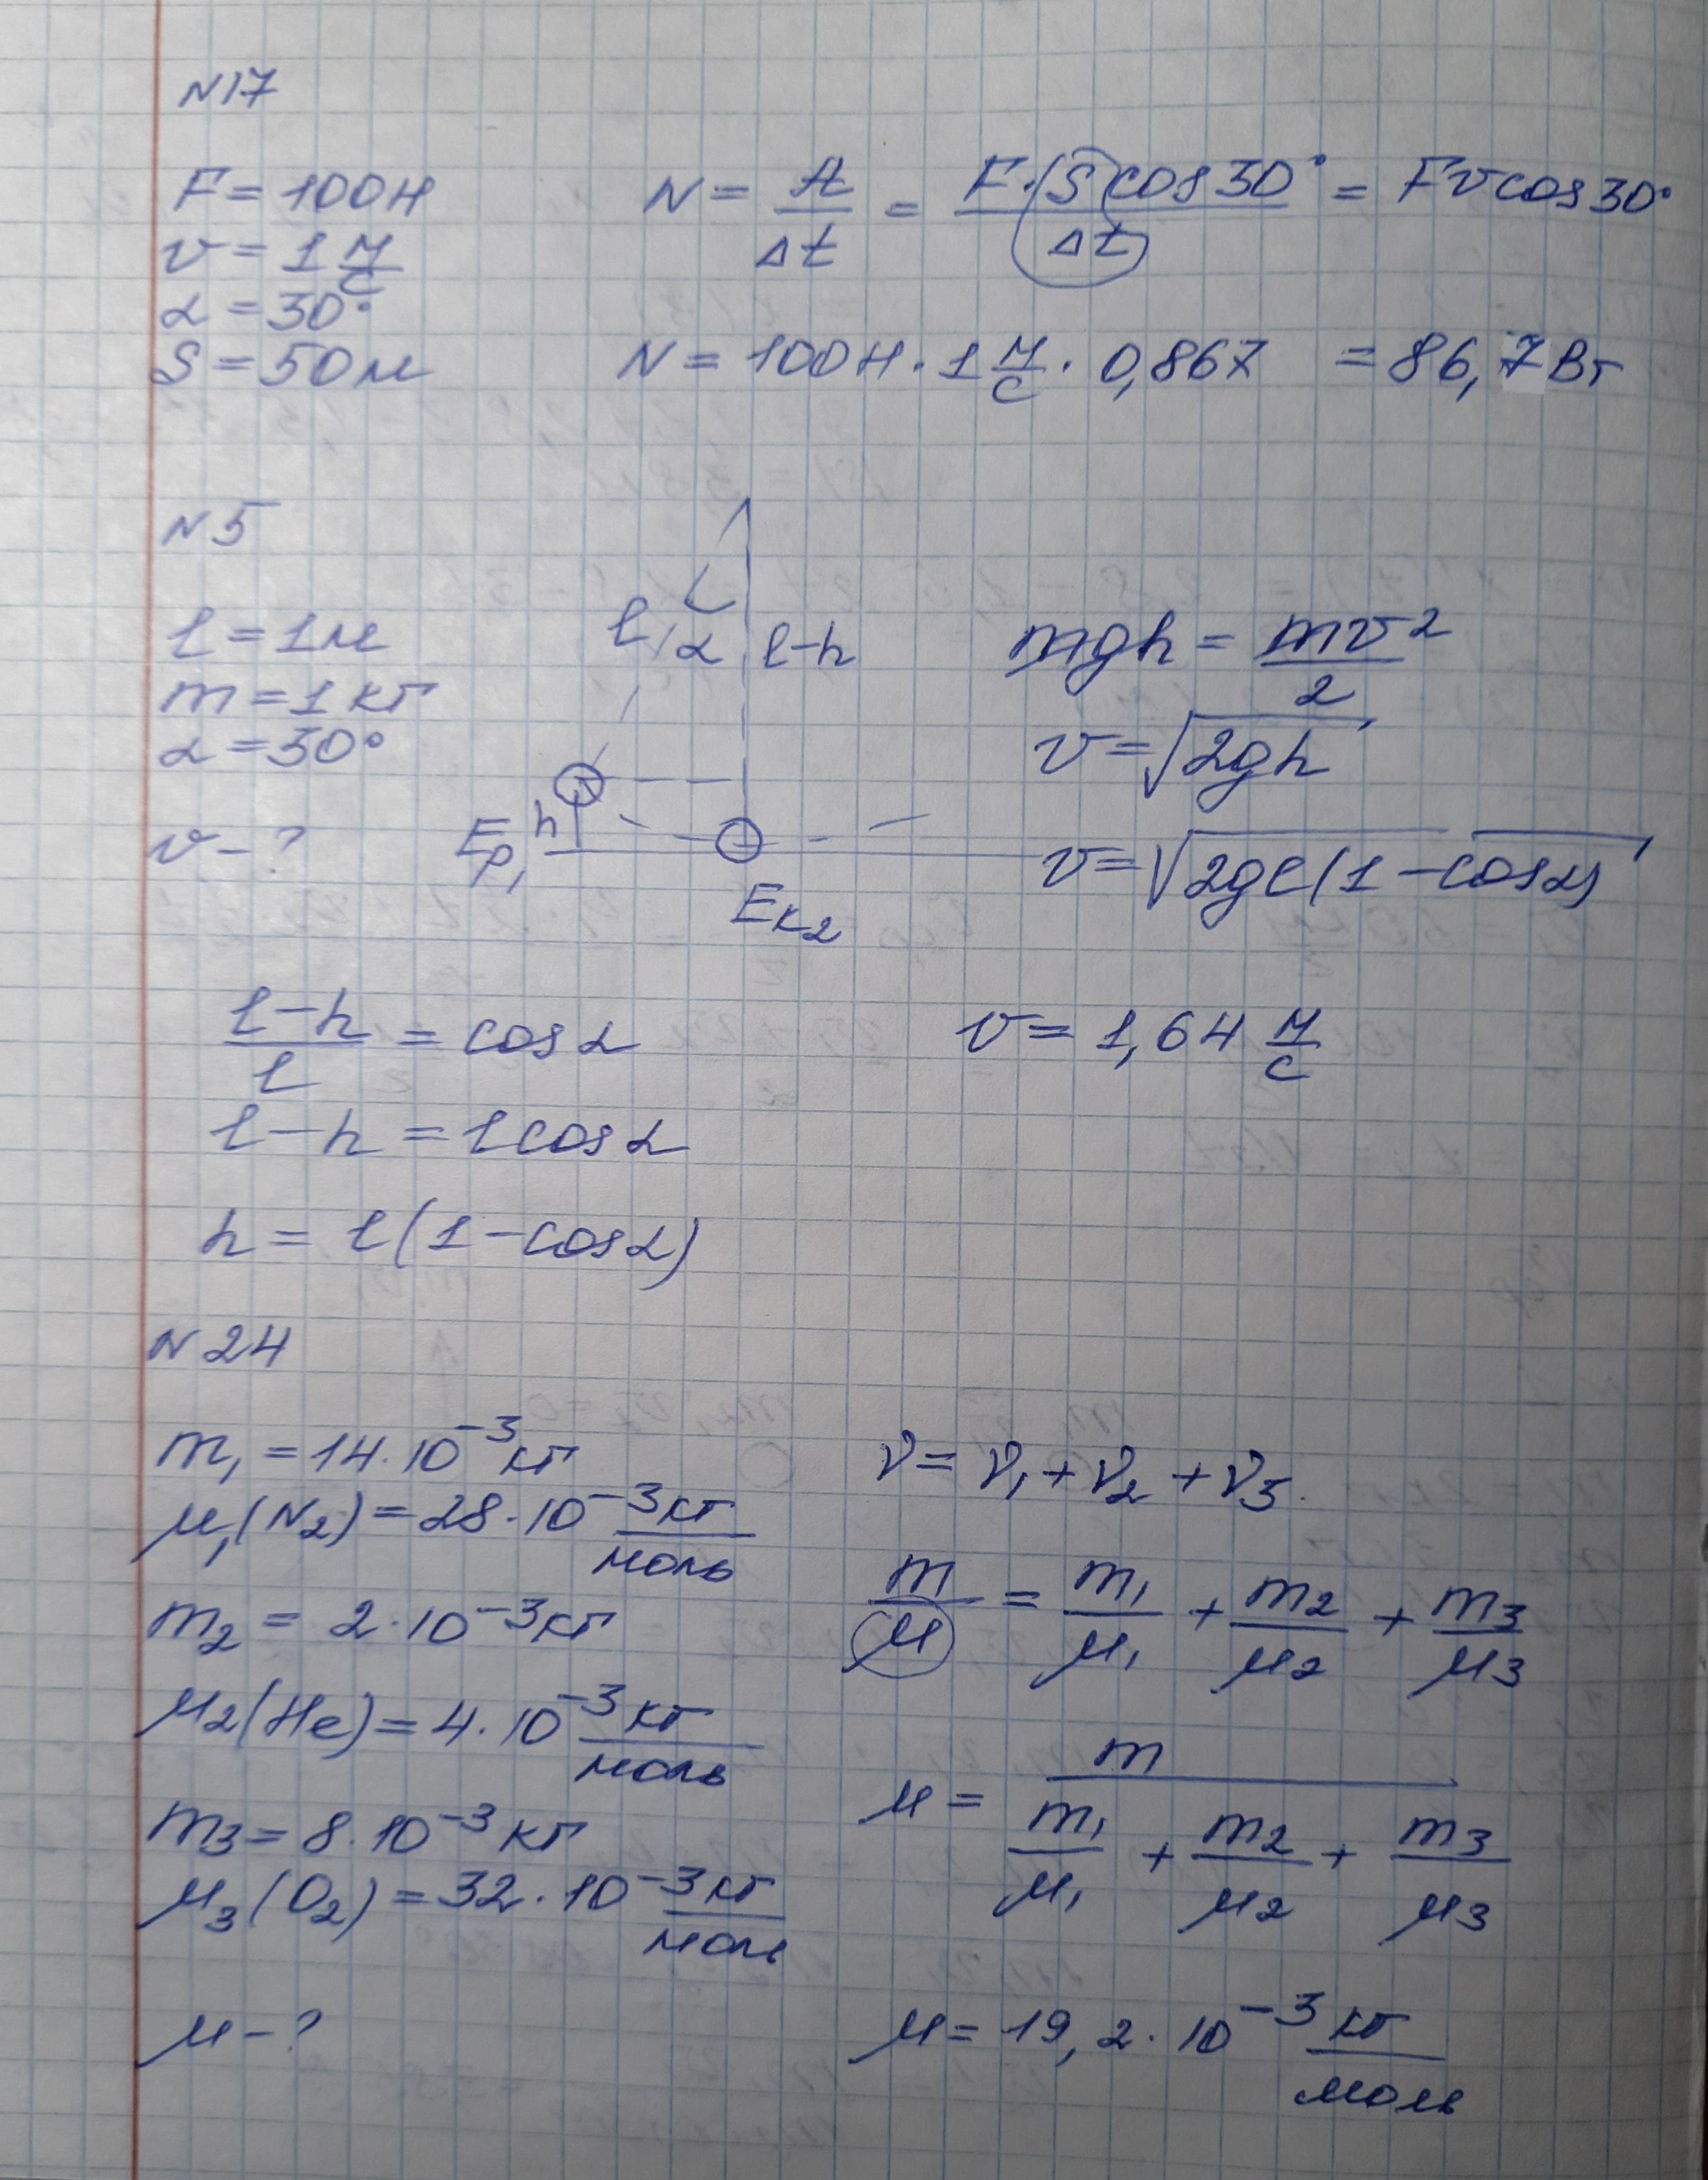 N17
F = 100Н
v = 1 м/с
α = 30°
S = 50м
N = A/Δt = F·S cos30°/Δt = Fv cos30°
N = 100Н · 1 м/с · 0,867 = 86,7Вт
N5
l = 1м
m = 1 кг
α = 30°
v – ?
l α l–h
h
Ep1
Eк2
mgh = mv²/2
v = √2gh
v = √2gl(1 – cosα)
(l–h)/l = cosα
l – h = l cosα
h = l(1 – cosα)
v = 1,64 м/с
N24
m₁ = 14·10⁻³ кг
μ₁(N₂) = 28·10⁻³ кг/моль
m₂ = 2·10⁻³ кг
μ₂(He) = 4·10⁻³ кг/моль
m₃ = 8·10⁻³ кг
μ₃(O₂) = 32·10⁻³ кг/моль
μ – ?
ν = ν₁ + ν₂ + ν₃
m/μ = m₁/μ₁ + m₂/μ₂ + m₃/μ₃
μ = m/(m₁/μ₁ + m₂/μ₂ + m₃/μ₃)
μ = 19,2·10⁻³ кг/моль